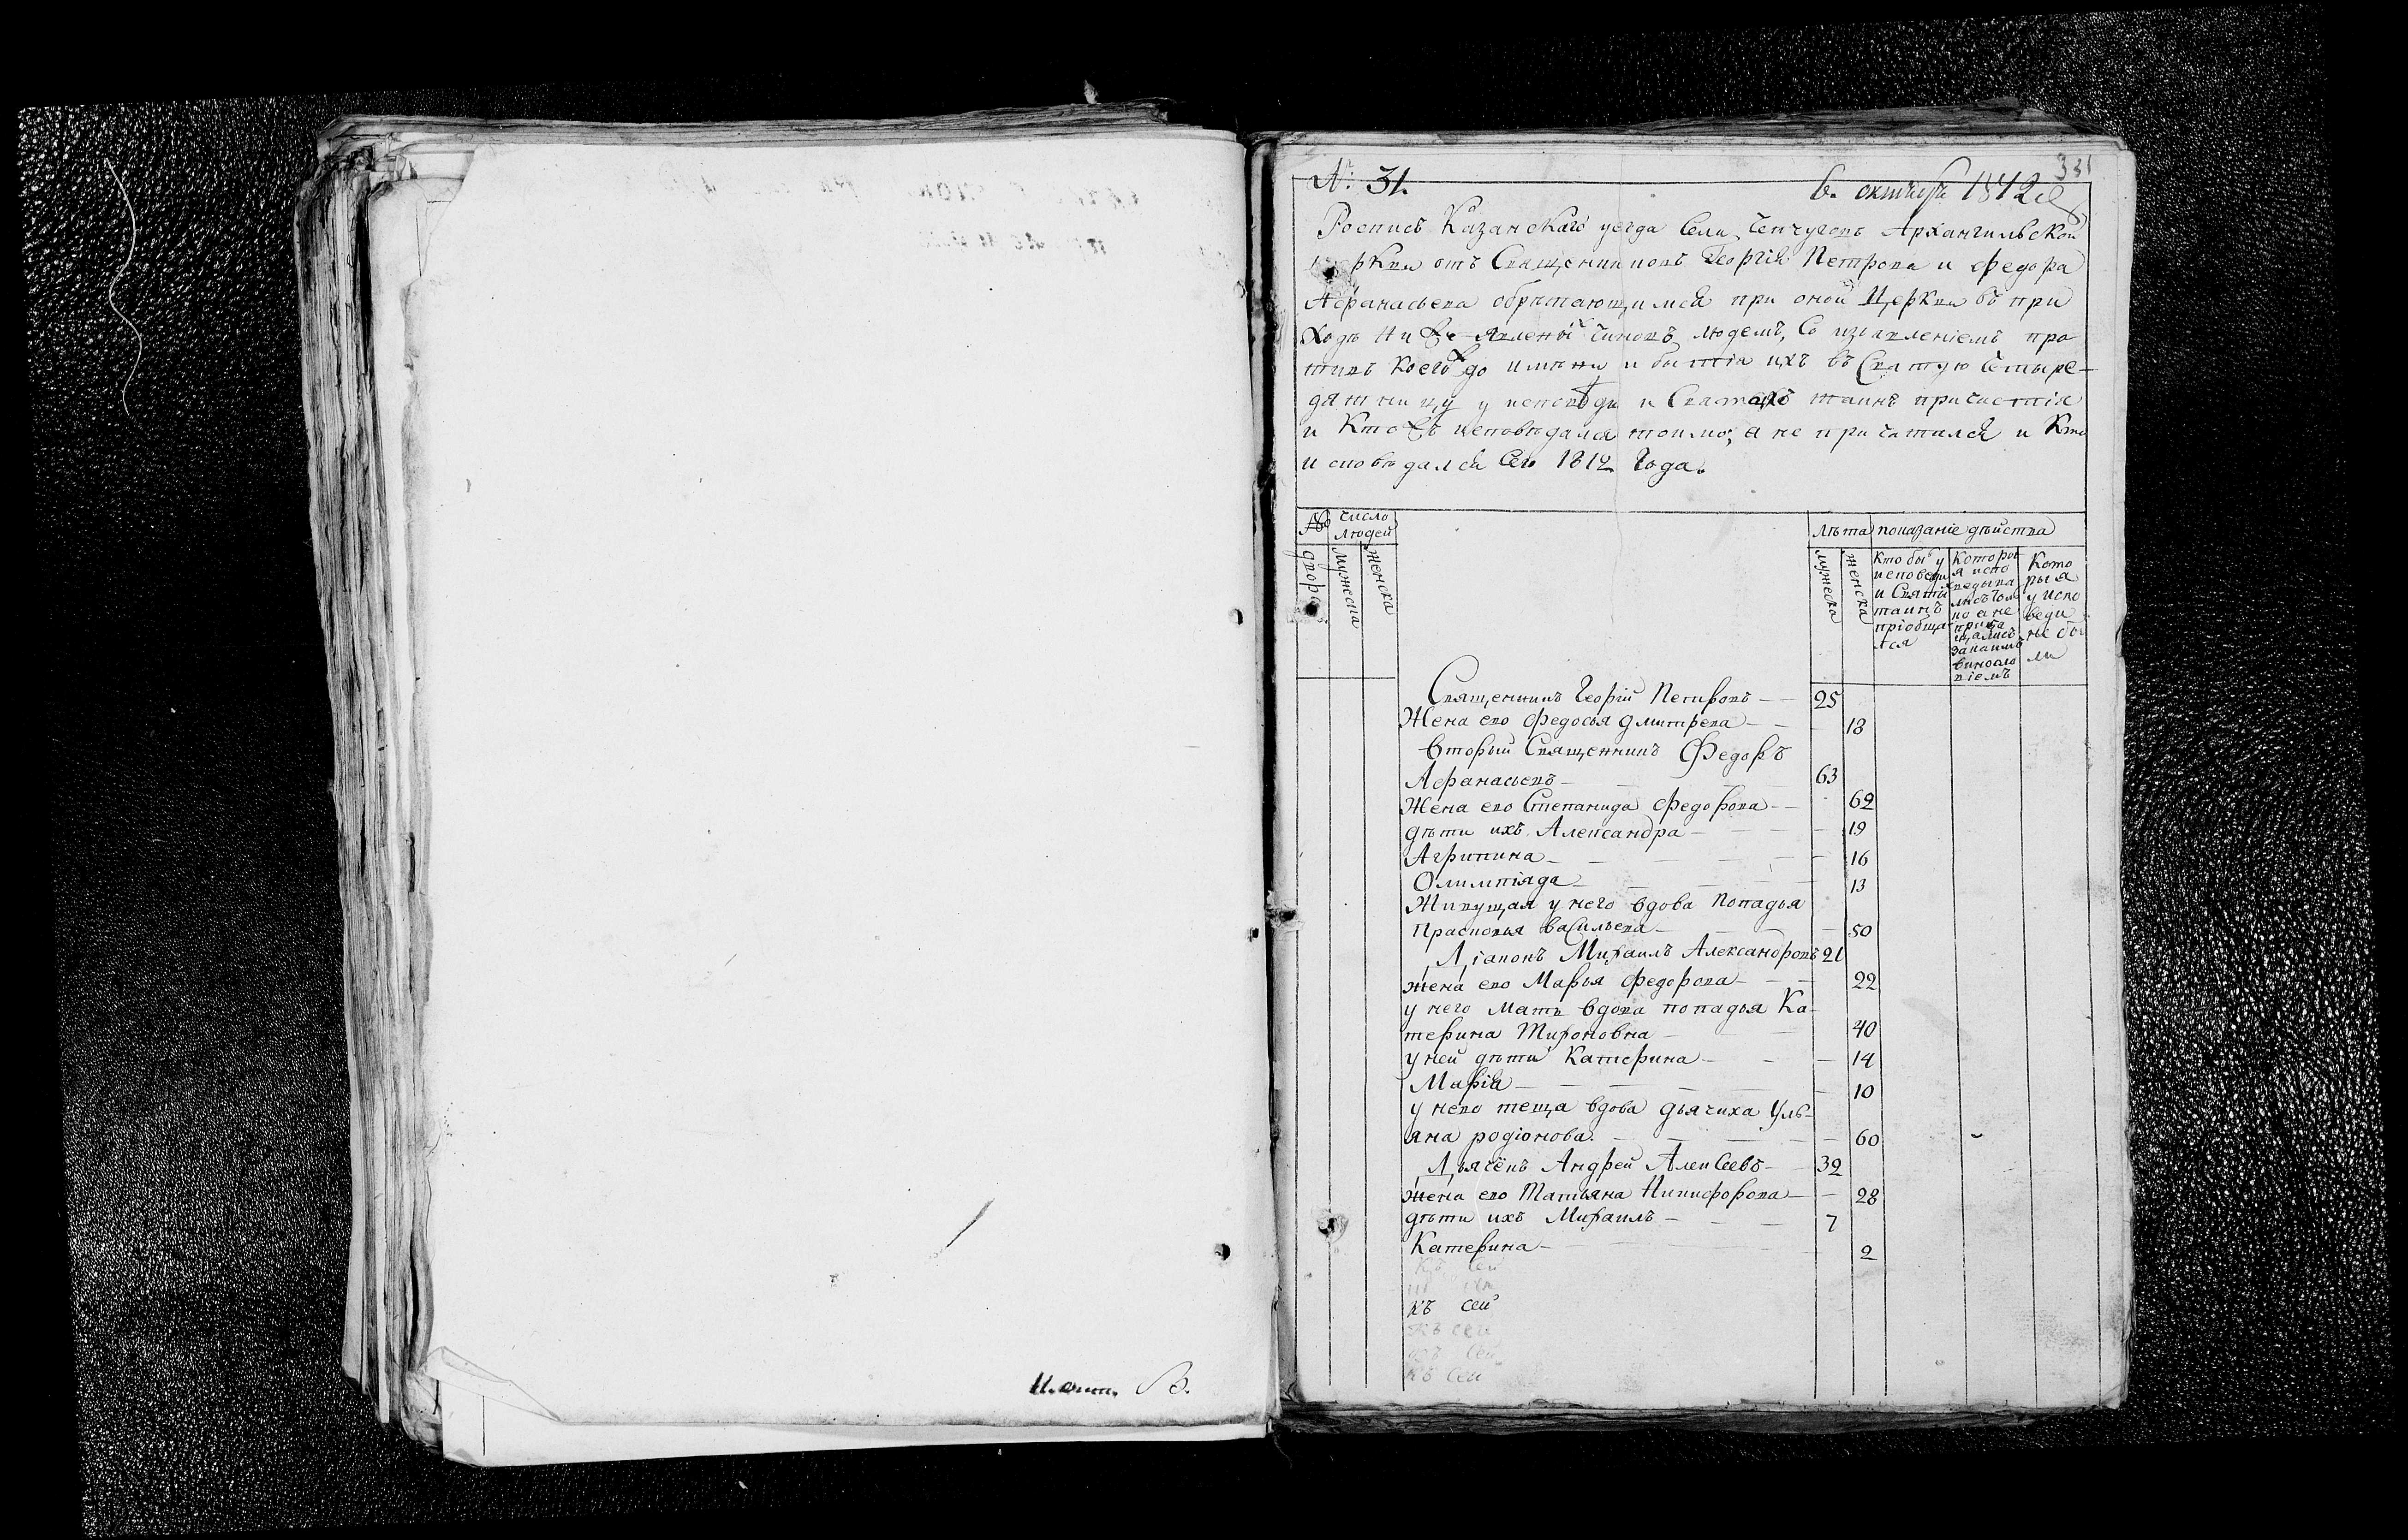 331
№ 31.
6. октября 1812
Роспись Казанскаго уезда Села Чепчуговъ Архангильской
церкви отъ Священниковъ Георгiя Петрова и Федора
Афанасьева обрѣтающимся при оной Церкви въ при
ходѣ ниже явленыхъ чиновъ людемъ, Со изъявленiемъ про
тивъ коегождо имяни и бытiя ихъ въ Святую Четыре-
дятницу у исповѣди и Святахъ таинъ причастiя
и Ктожъ исповѣдался токмо, а не причатился и Кто
исповѣдался Сего 1812 Года.
№ двора
число людей
мужеска
женска
лѣта
мужеска
женска
показанiе дѣйства
Кто былъ у
исповеди
и Святыхъ
таинъ
прiобща
лся
Которы
я испо
ведыва
лись ток
мо а не
прича
щались
за какимъ
винослов
iемъ
Кото
рыя
у испо
веди
не бы
ли
Священникъ Георгiй Петровъ — 25
Жена ево Федосья Дмитрева — 18
Вторый Священникъ Федоръ
Афанасьевъ — 63
Жена ево Степанида Федорова — 62
дѣти ихъ Александра — 19
Агрипина — 16
Олимпiяда — 13
Живущая у него вдова попадья
Прасковья Васильева — 50
Дiаконъ Михаилъ Александровъ 21
жена ево Марья Федорова — 22
у него мать вдова попадья Ка-
терина Мироновна — 40
у ней дѣти Катерина — 14
Марiя — 10
у нево теща вдова дьячиха Уль-
яна родiонова. — 60
Дьячёкъ Андрей Алексеевъ — 32
жена ево Татьяна Никифорова — 28
дѣти ихъ Михаилъ — 7
Катерина — 2
къ сей
къ сей
къ сей
къ сей
къ сей